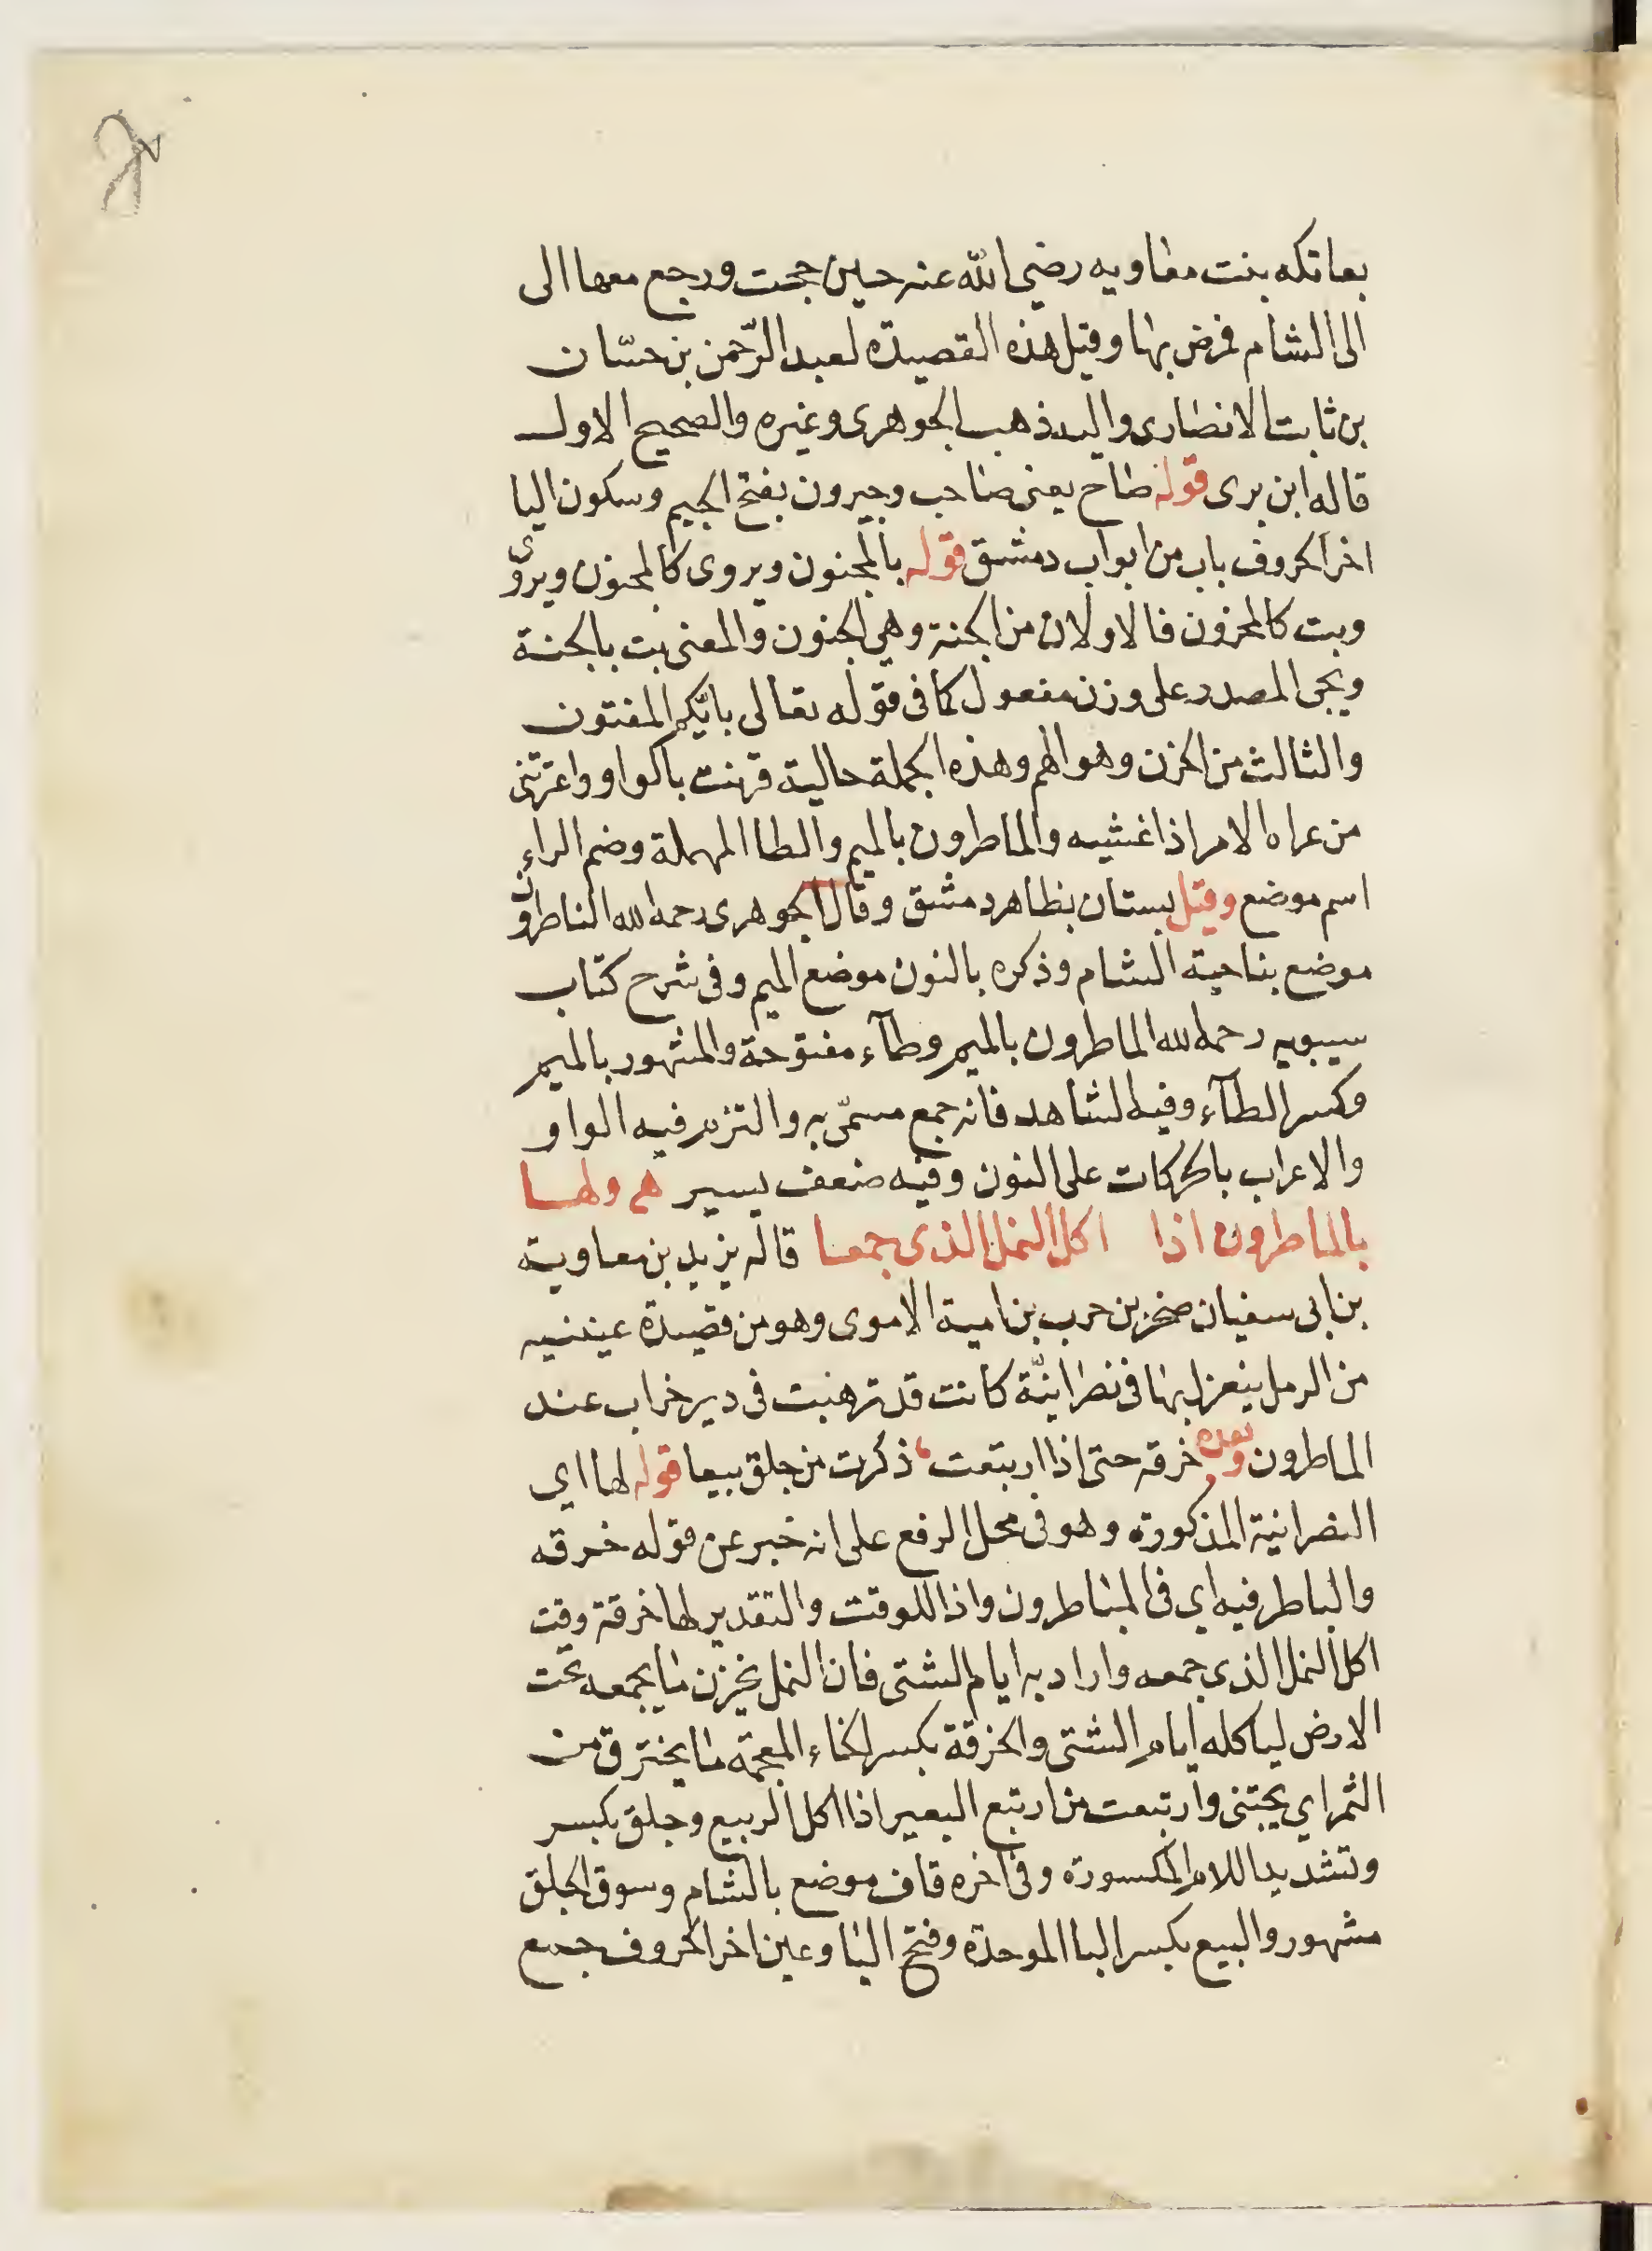 بعاتكه بنت معاويه رضي الله عنه حين حجت ورجع معها الى
الى الشام فمرض بها وقيل هذه القصيدة لعبد الرّحمن بن حسّان
بن ثابت الانصارى واليه ذهب الجوهرى وغيره والصحيح الاول
قاله ابن برى قوله صاح يعنى صاحب وجيرون بفتح الجيم وسكون اليا
اخر الحروف باب من ابواب دمشق قوله بالمجنون ويروى كالمجنون ويروى
وبت كالمحزون فالاولان من الجنة وهي الجنون والمعنى بت بالجنة
ويجى المصدر على وزن مفعول كما فى قوله تعالى بايّكم المفتون
والثالث من الحزن وهو الهم وهذه الجملة حالية قرنت بالواو واعترتنى
من عراه الامر اذا غشيه والماطرون بالميم والطا المهملة وضم الراء
اسم موضع وقيل بستان بظاهر دمشق وقال الجوهرى رحمه الله الناطرون
موضع بناحية الشام وذكره بالنون موضع الميم وفى شرح كتاب
سيبويه رحمه الله الماطرون بالميم وطآء مفتوحة والمشهور بالميم
وكسر الطآء وفيه الشاهد فانه جمع مسمّى به والتزم فيه الواو
والاعراب بالحركات على النون وفيه ضعف يسير هع ولها
بالماطرون اذا اكل النمل الذى جمعا قاله يزيد بن معاوية
بن ابى سفيان صخر بن حرب بن امية الاموى وهو من قصيدة عينيه
من الرمل يتغزل بها فى نصرانيّة كانت قد ترهبت فى دير خراب عند
الماطرون وبعده خرفه حتى اذا ارتبعت، ذكرت من جلق بيعا قوله لها اى
النصرانية المذكورة وهو فى محل الرفع على انه خبر عن قوله خرقه
والبا ظرفيه اى فى الماطرون واذا للوقت والتقدير لها خرقة وقت
اكل النمل الذى جمعه واراد به ايام الشتى فان النمل يخزن ما يجمعه تحت
الارض لياكله ايام الشتى والخرقة بكسر الخاء المعجمة ما يخترق من
الثمر اي يجتنى وارتبعت من ارتبع البعير اذا اكل الربيع وجلق بكسر
وتشديد اللام المكسورة وفى اخره قاف موضع بالشام وسوق الجلق
مشهور والبيع بكسر البا الموحدة وفتح اليا وعين اخر الحروف جمع